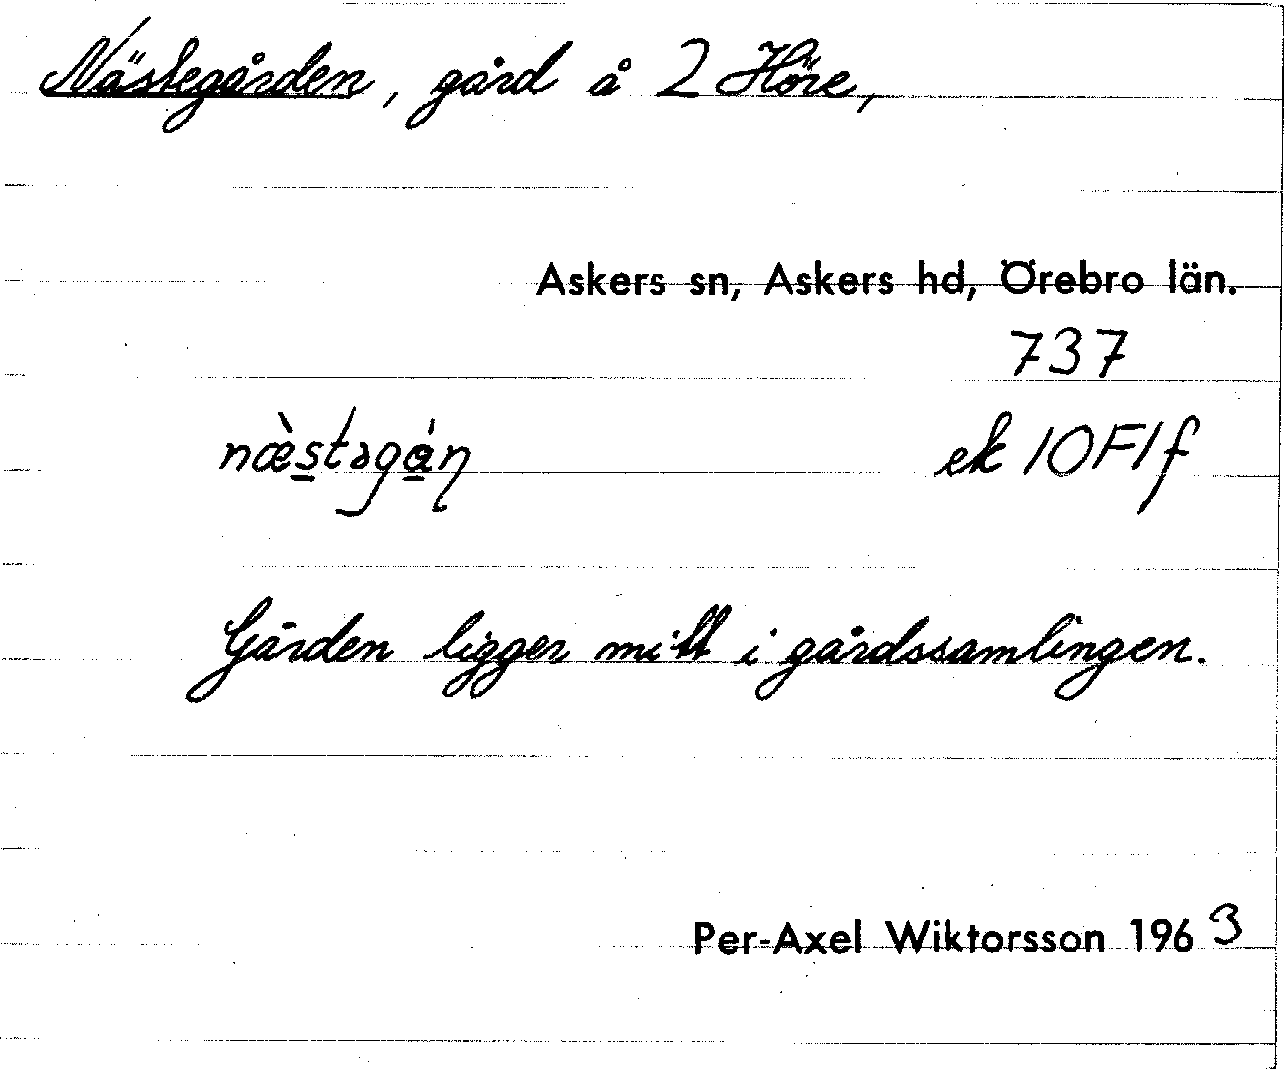 Nästegården, gård å 2 Höre,
Askers sn, Askers hd, Örebro län.
737
næ̀stəgɑ́ɳ ek 10F1f
Gården ligger mitt i gårdssamlingen.
Per-Axel Wiktorsson 1963